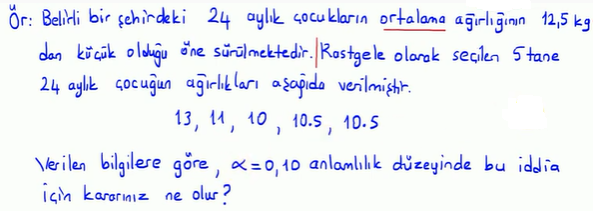 Ör: Belirli bir şehirdeki 24 aylık çocukların ortalama ağırlığının 12,5 kg
dan küçük olduğu öne sürülmektedir. Rastgele olarak seçilen 5 tane
24 aylık çocuğun ağırlıkları aşağıda verilmiştir.
13, 11, 10, 10.5, 10.5
Verilen bilgilere göre, α=0,10 anlamlılık düzeyinde bu iddia
için kararınız ne olur?